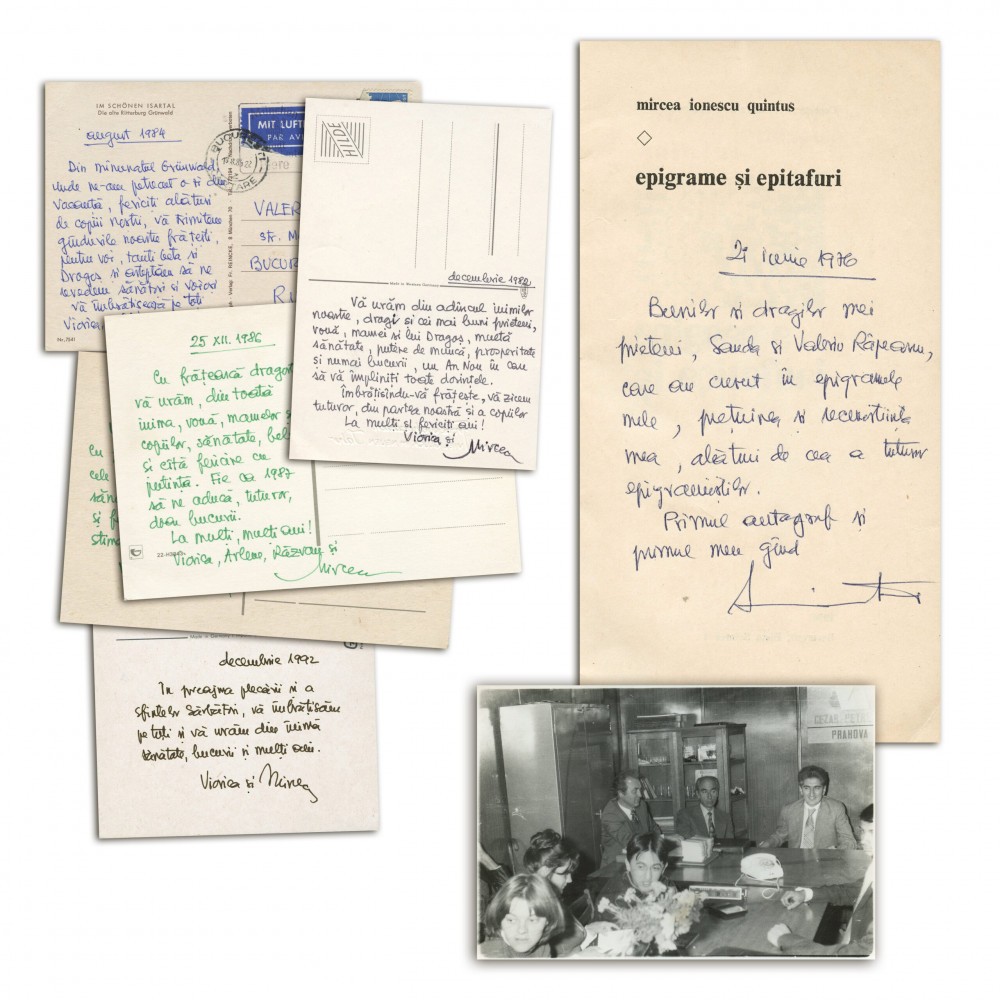 IM SCHÖNEN ISARTAL
Die alte Ritterburg Grünwald
august 1984
Din minunatul Grünwald,
unde ne-am petrecut o zi din
vacanță, fericiți alături
de copiii noștri, vă trimitem
gîndurile noastre frățești,
pentru voi, tanti Geta și
Dragoș și așteptăm să ne
revedem sănătoși și voioși
Vă îmbrățișează pe toți
Viorica
Nr. 7841
MIT LUFT
PAR AVI
BUCUREȘTI
VALER
STR. M
BUCUR
R
HILDE
decembrie 1982
Made in Western Germany
Vă urăm din adîncul inimilor
noastre, dragi și cei mai buni prieteni,
vouă, mamei și lui Dragoș, multă
sănătate, putere de muncă, prosperitate
și numai bucurii, un An Nou în care
să vă împliniți toate dorințele.
Îmbrățișîndu-vă frățește, vă zicem
tuturor, din partea noastră și a copiilor
La mulți și fericiți ani!
Viorica și Mircea
25 XII. 1986
Cu frățească dragoste
vă urăm, din toată
inima, vouă, mamelor și
copiilor, sănătate, bel
și cîtă fericire cu
putință. Fie ca 1987
să ne aducă, tuturor,
doar bucurii.
La mulți, mulți ani!
Viorica, Arlene, Răzvan și
Mircea
Cu
cele
săn
și f
stim
decembrie 1992
În preajma plecării și a
sfintelor Sărbători, vă îmbrățișăm
pe toți și vă urăm din inimă
sănătate, bucurii și mulți ani.
Viorica și Mircea
mircea ionescu quintus
epigrame și epitafuri
21 iunie 1976
Bunilor și dragilor mei
prieteni, Sanda și Valeriu Râpeanu,
care au crezut în epigramele
mele, prețuirea și recunoștința
mea, alături de cea a tuturor
epigramiștilor.
Primul autograf și
primul meu gînd
CEZAR PET
PRAHOVA